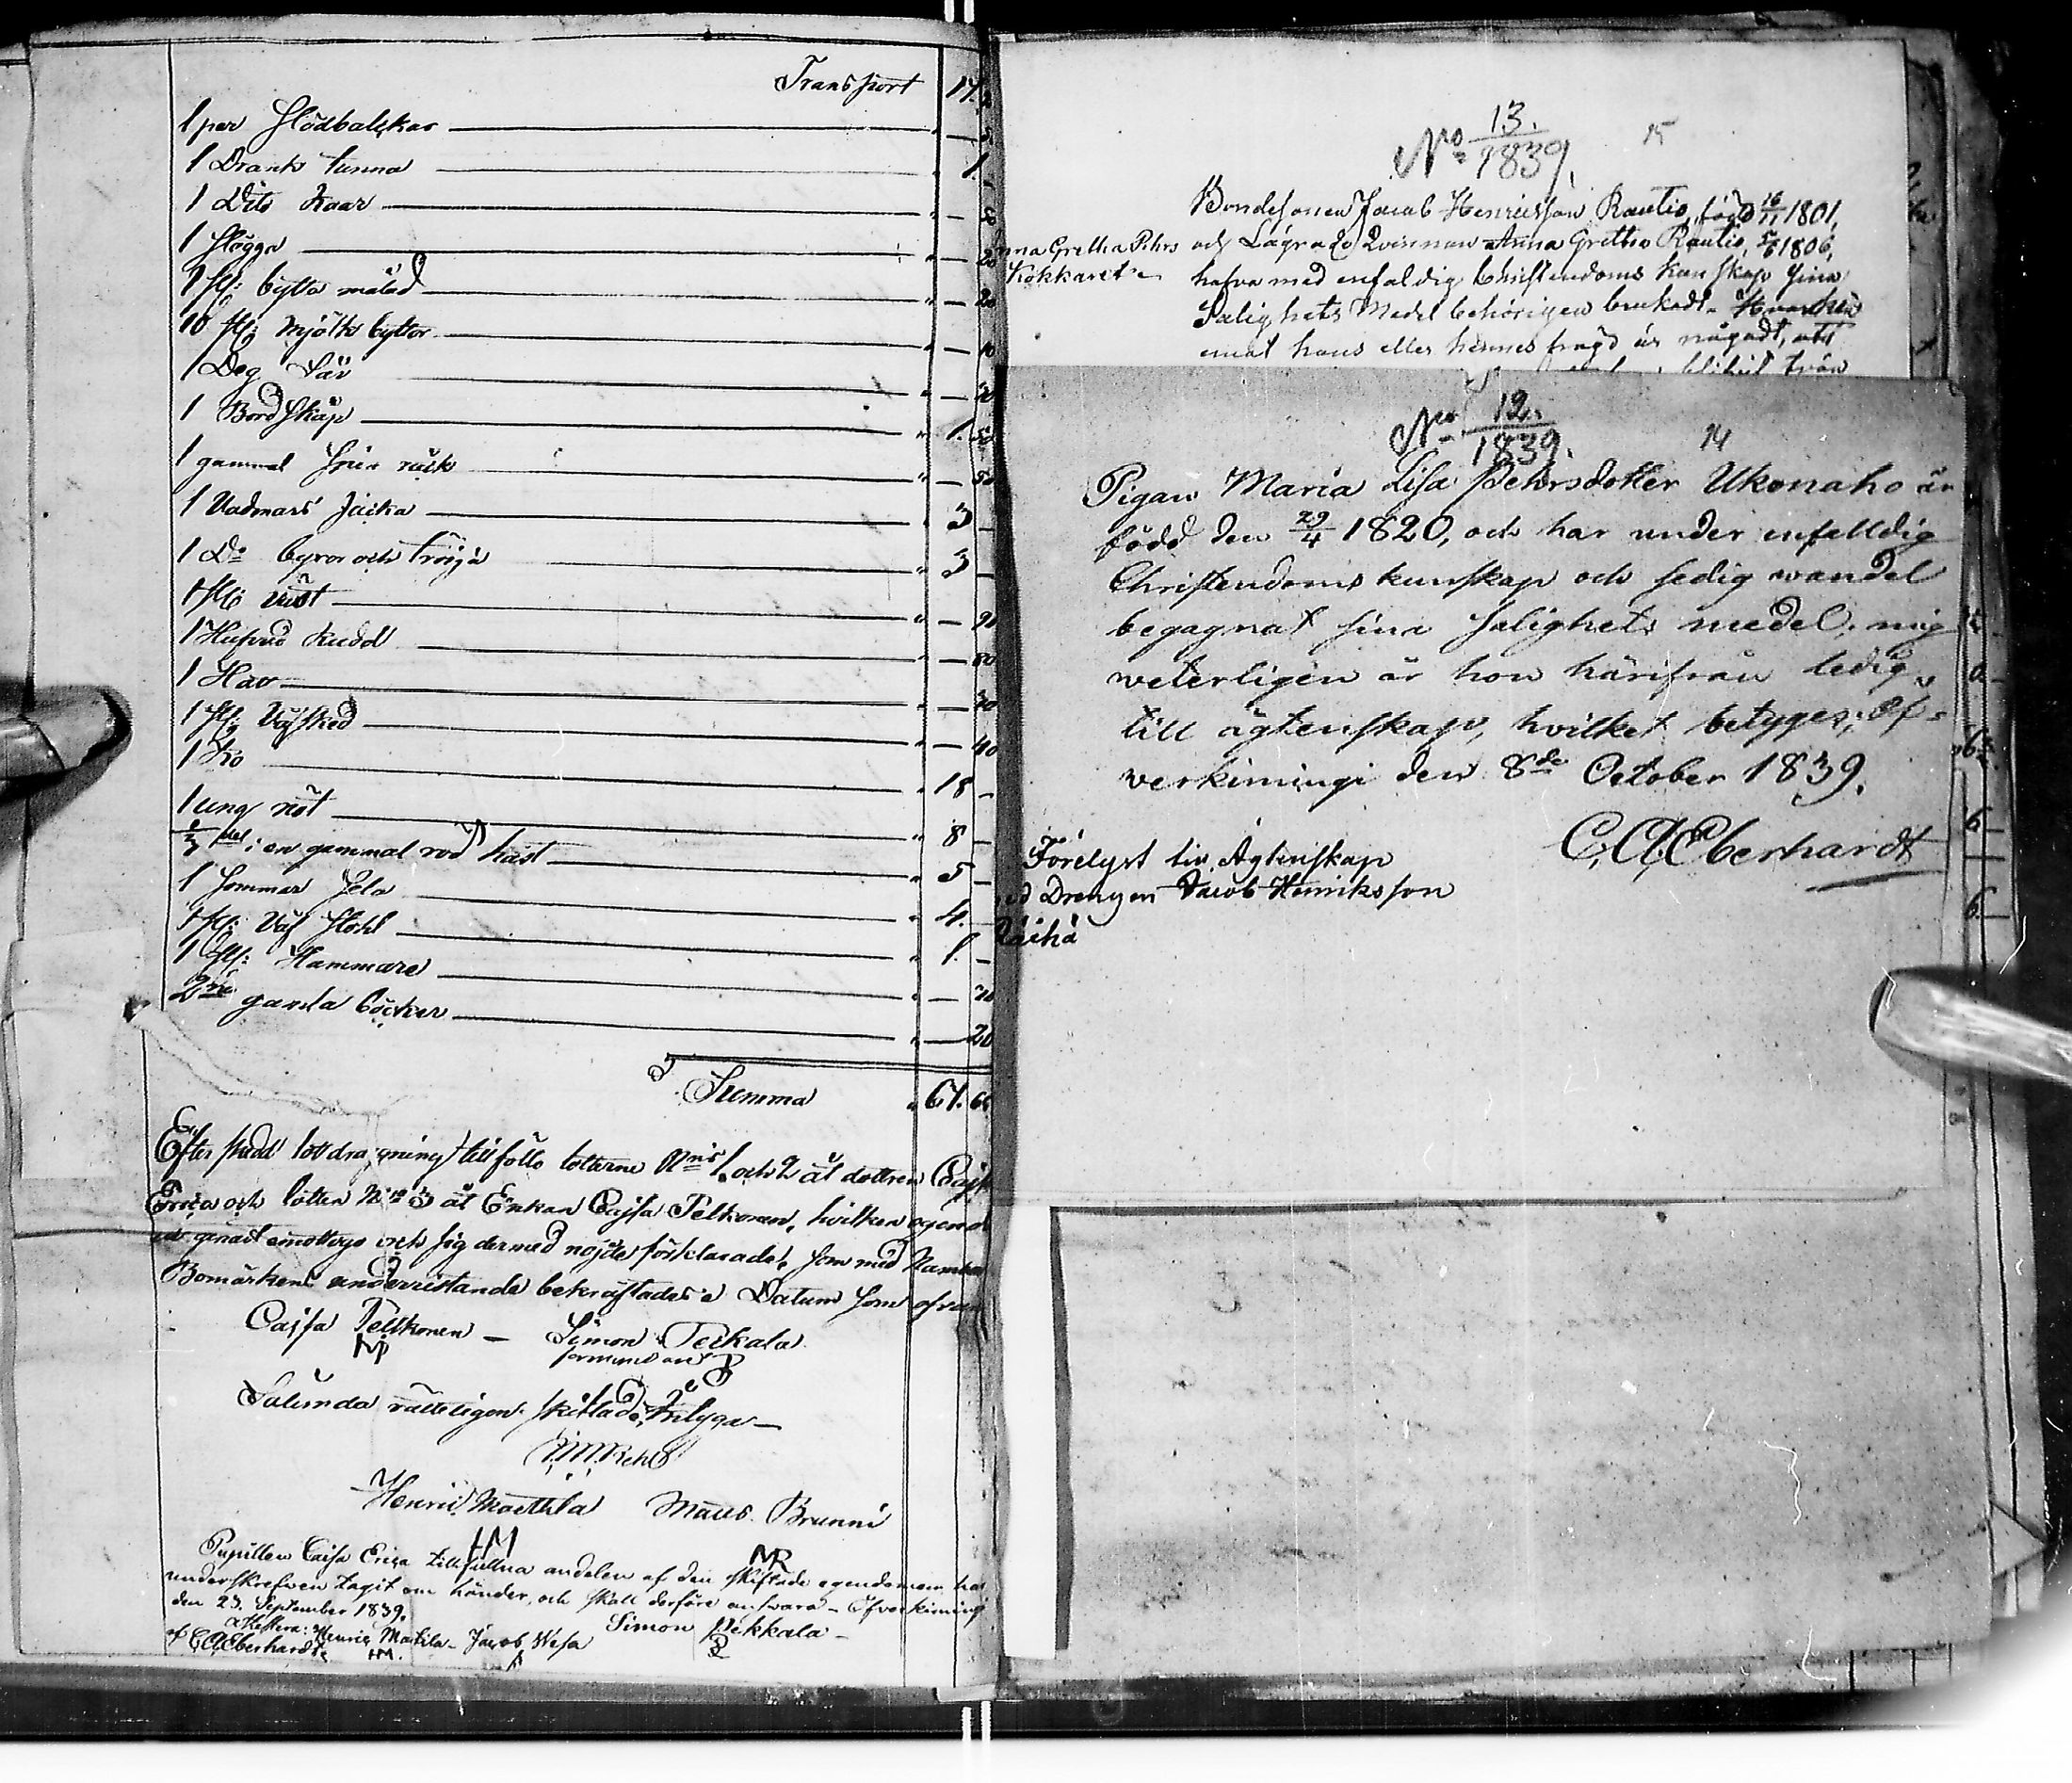 Transport 17.
1 par Slädbalkar — 5
1 Drank tunna 1. —
1 Dito Kaar —
1 Slägga — 20
1 st: bytta målad — 20
10 st: Mjölks byttor — 10
1 Deg
1 Bord Skåp 1. 50
1 gammal — 50
1 Vadmars Jacka 3 —
1 Do byxor och tröja 3 —
1 st: väst — 20
1 Hufvud kudd — 80
1 Hav
1 st: Väfsked — 40
1 Ko 18 —
1 ung nöt 8 —
del i en gammal röd häst 5 —
1 Sommar Sela 4. —
1 st: Väf Stohl 1. —
1 st: Hammare — 20
2ne gamla böcker — 20
Summa 67. 66
Efter skedd lottdragning tillföllo lotterne Nris 1. och 2 åt dottren Cajsa
Erica och lotten No 3 åt Enkan Cajsa Pelkonen, hvilken egendom
genast emottogs och sig dermed nöjde förklarade, som med Namn
Bomärkens undveristande bekräftades Datum som ofvan
Cajsa Pellkonen — Simon Peckala
Sålunda rätteligen skiftadt, betyga —
Henric Mattila Mats Brunni
HM MR
Pupillen Caisa Erica tillfallna andelen af den skiftade egendomen har
underskrefven tagit om händer, och skall derföre answara — Ofverkiming
den 23. September 1839.
Simon Pekkala —
attestera: Henric Mattila — Jacob Wesa
af C A Eberhardt. HM.
No 13./1839. 15
Bondesonen Jacob Henriksson Rautio, född 16/11 1801,
och Lägrade Qvinnan Anna Gretha Rautio, 5/6 1806,
hafva med enfaldig Christendoms kunskap sina
Salighets Medel behörigen brukadt. Hvarken
emot hans eller hennes frägd är någodt, att
blifvit från
Anna Gretha Pehrs
Kokkarit
No 12./1839. 14
Pigan Maria Lisa Pehrsdotter Ukonaho är
född den 29/4 1820, och har under enfalldig
Christendoms kunskap och sedig wandel
begagnat sina salighets medel; mig
weterligen är hon härifrån ledig
till ägtenskap, hvilket betyges; Of-
verkimingi den 8de October 1839.
C. A. Eberhardt
Förelyst til Ägtenskap
med Drengen Jacob Henriksson
Räihä